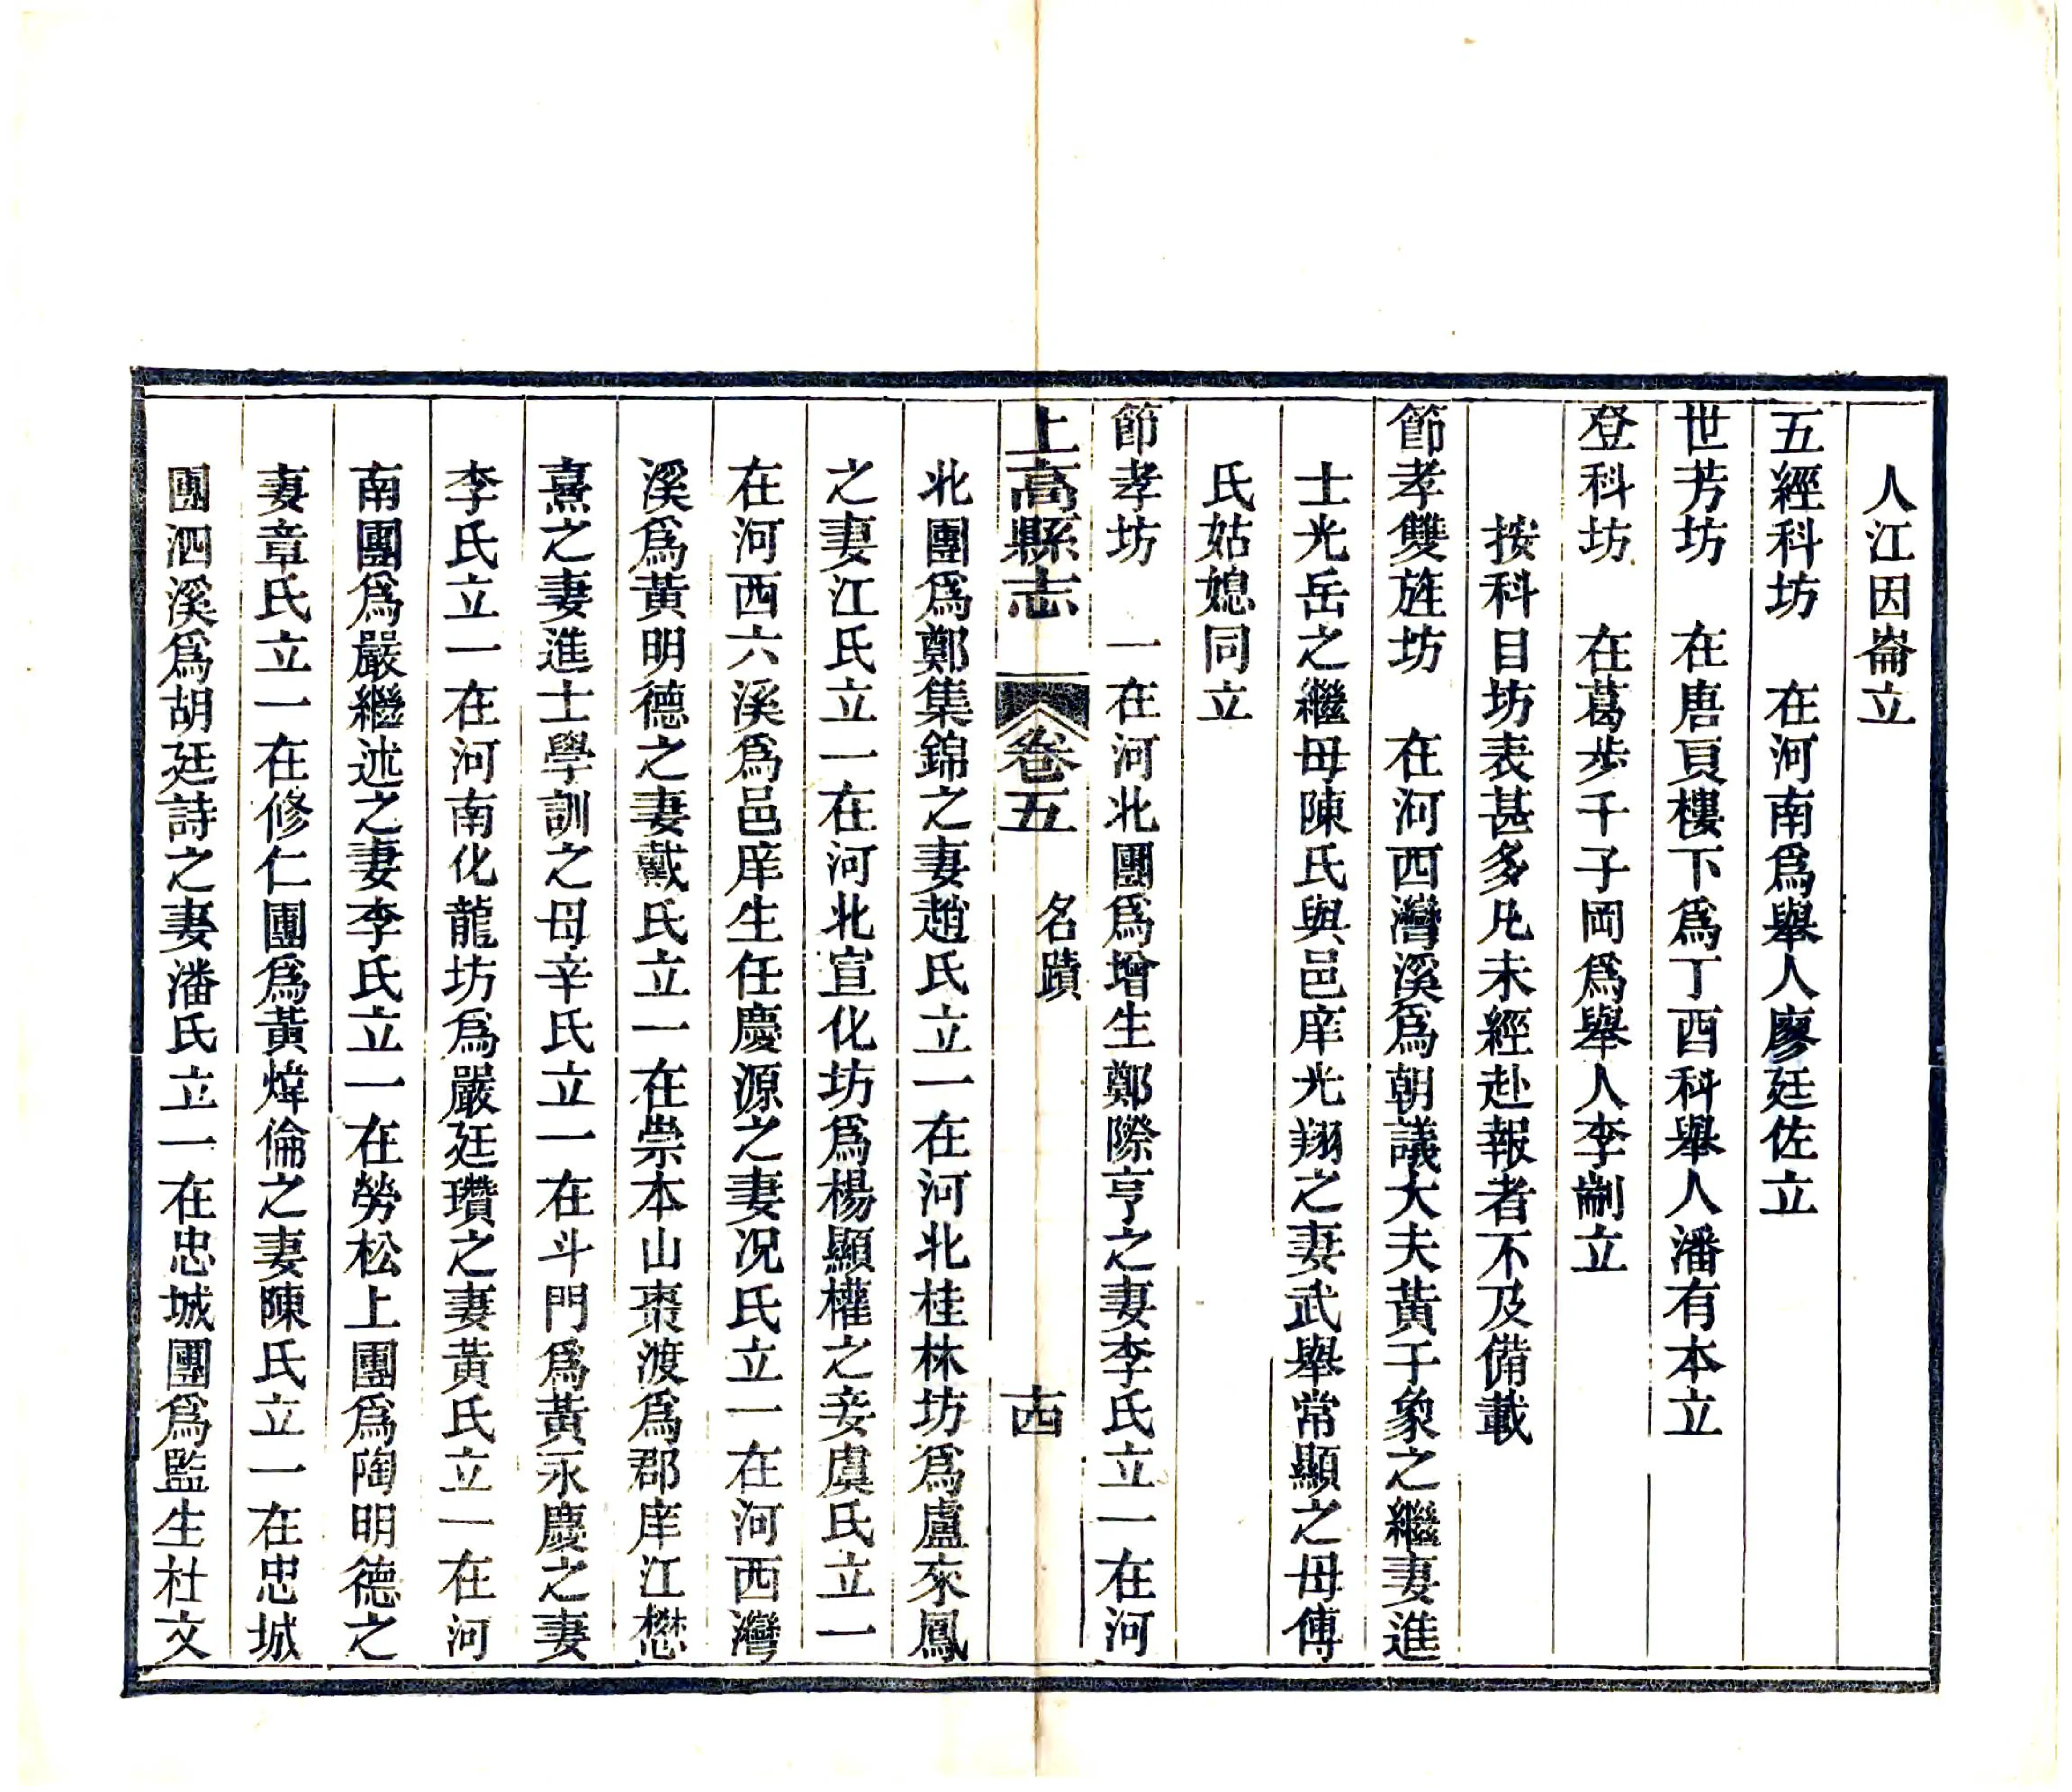 人江因崙立
五經科坊　在河南爲舉人廖廷佐立
世芳坊　在唐頁樓下爲丁酉科舉人潘有本立
登科坊　在葛步千子岡爲舉人李制立
按科目坊表甚多凡未經赴報者不及備載
節孝雙旌坊　在河西灣溪爲朝議大夫黃于象之繼妻進
士光岳之繼母陳氏與邑庠光翔之妻武舉常顯之母傅
氏姑媳同立
節孝坊　一在河北團爲增生鄭際亨之妻李氏立一在河
上高縣志　卷五　名蹟　十四
北團爲鄭集錦之妻趙氏立一在河北桂林坊爲盧來鳳
之妻江氏立一在河北宣化坊爲楊顯權之妾虞氏立一
在河西六溪爲邑庠生任慶源之妻况氏立一在河西灣
溪爲黃明德之妻戴氏立一在崇本山棗渡爲郡庠江懋
熹之妻進士學訓之母辛氏立一在斗門爲黃永慶之妻
李氏立一在河南化龍坊爲嚴廷瓚之妻黃氏立一在河
南團爲嚴繼述之妻李氏立一在勞松上團爲陶明德之
妻章氏立一在修仁團爲黃煒倫之妻陳氏立一在忠城
團泗溪爲胡廷詩之妻潘氏立一在忠城團爲監生杜文